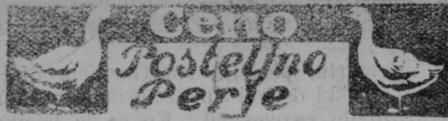 Ceno
Posteljno
Perje